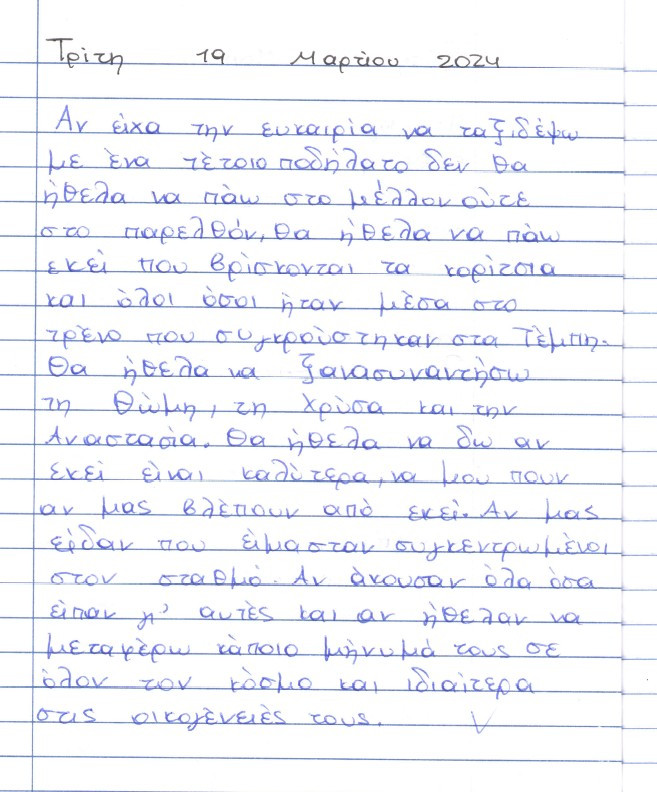 Τρίτη 19 Μαρτίου 2024
Αν είχα την ευκαιρία να ταξιδέψω
με ένα τέτοιο ποδήλατο δεν θα
ήθελα να πάω στο μέλλον ούτε
στο παρελθόν, θα ήθελα να πάω
εκεί που βρίσκονται τα κορίτσια
και όλοι όσοι ήταν μέσα στο
τρένο που συγκρούστηκαν στα Τέμπη.
Θα ήθελα να ξανασυναντήσω
τη Θώμη, τη Χρύσα και την
Αναστασία. Θα ήθελα να δω αν
εκεί είναι καλύτερα, να μου πουν
αν μας βλέπουν από εκεί. Αν μας
είδαν που είμασταν συγκεντρωμένοι
στον σταθμό. Αν άκουσαν όλα όσα
είπαν γι' αυτές και αν ήθελαν να
μεταφέρω κάποιο μήνυμά τους σε
όλον τον κόσμο και ιδιαίτερα
στις οικογένειές τους.